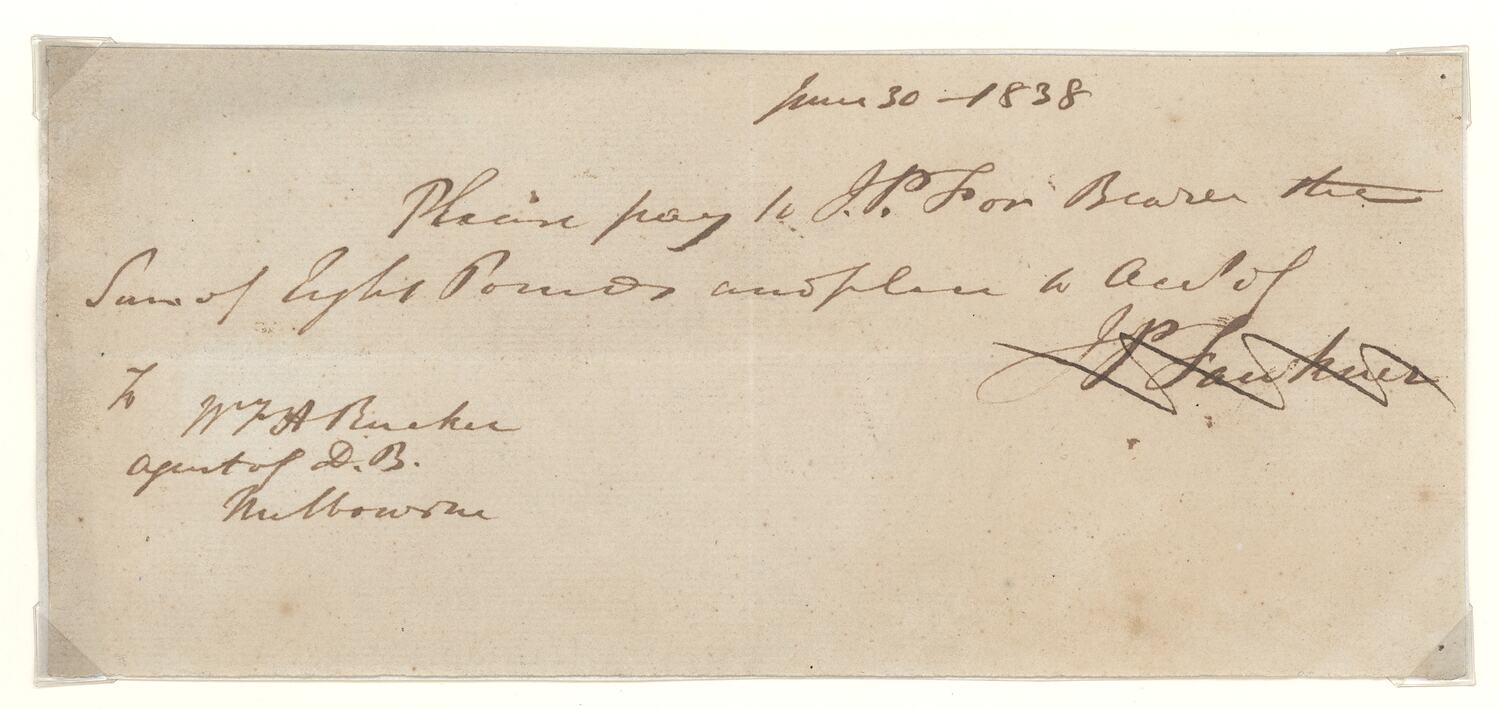 June 30 - 1838
Please pay to J.P. For Bearer the
Sum of Eight Pounds and place to Act of
J P Fawkner
To
Wm F H Rucker
agent of D. B.
Melbourne